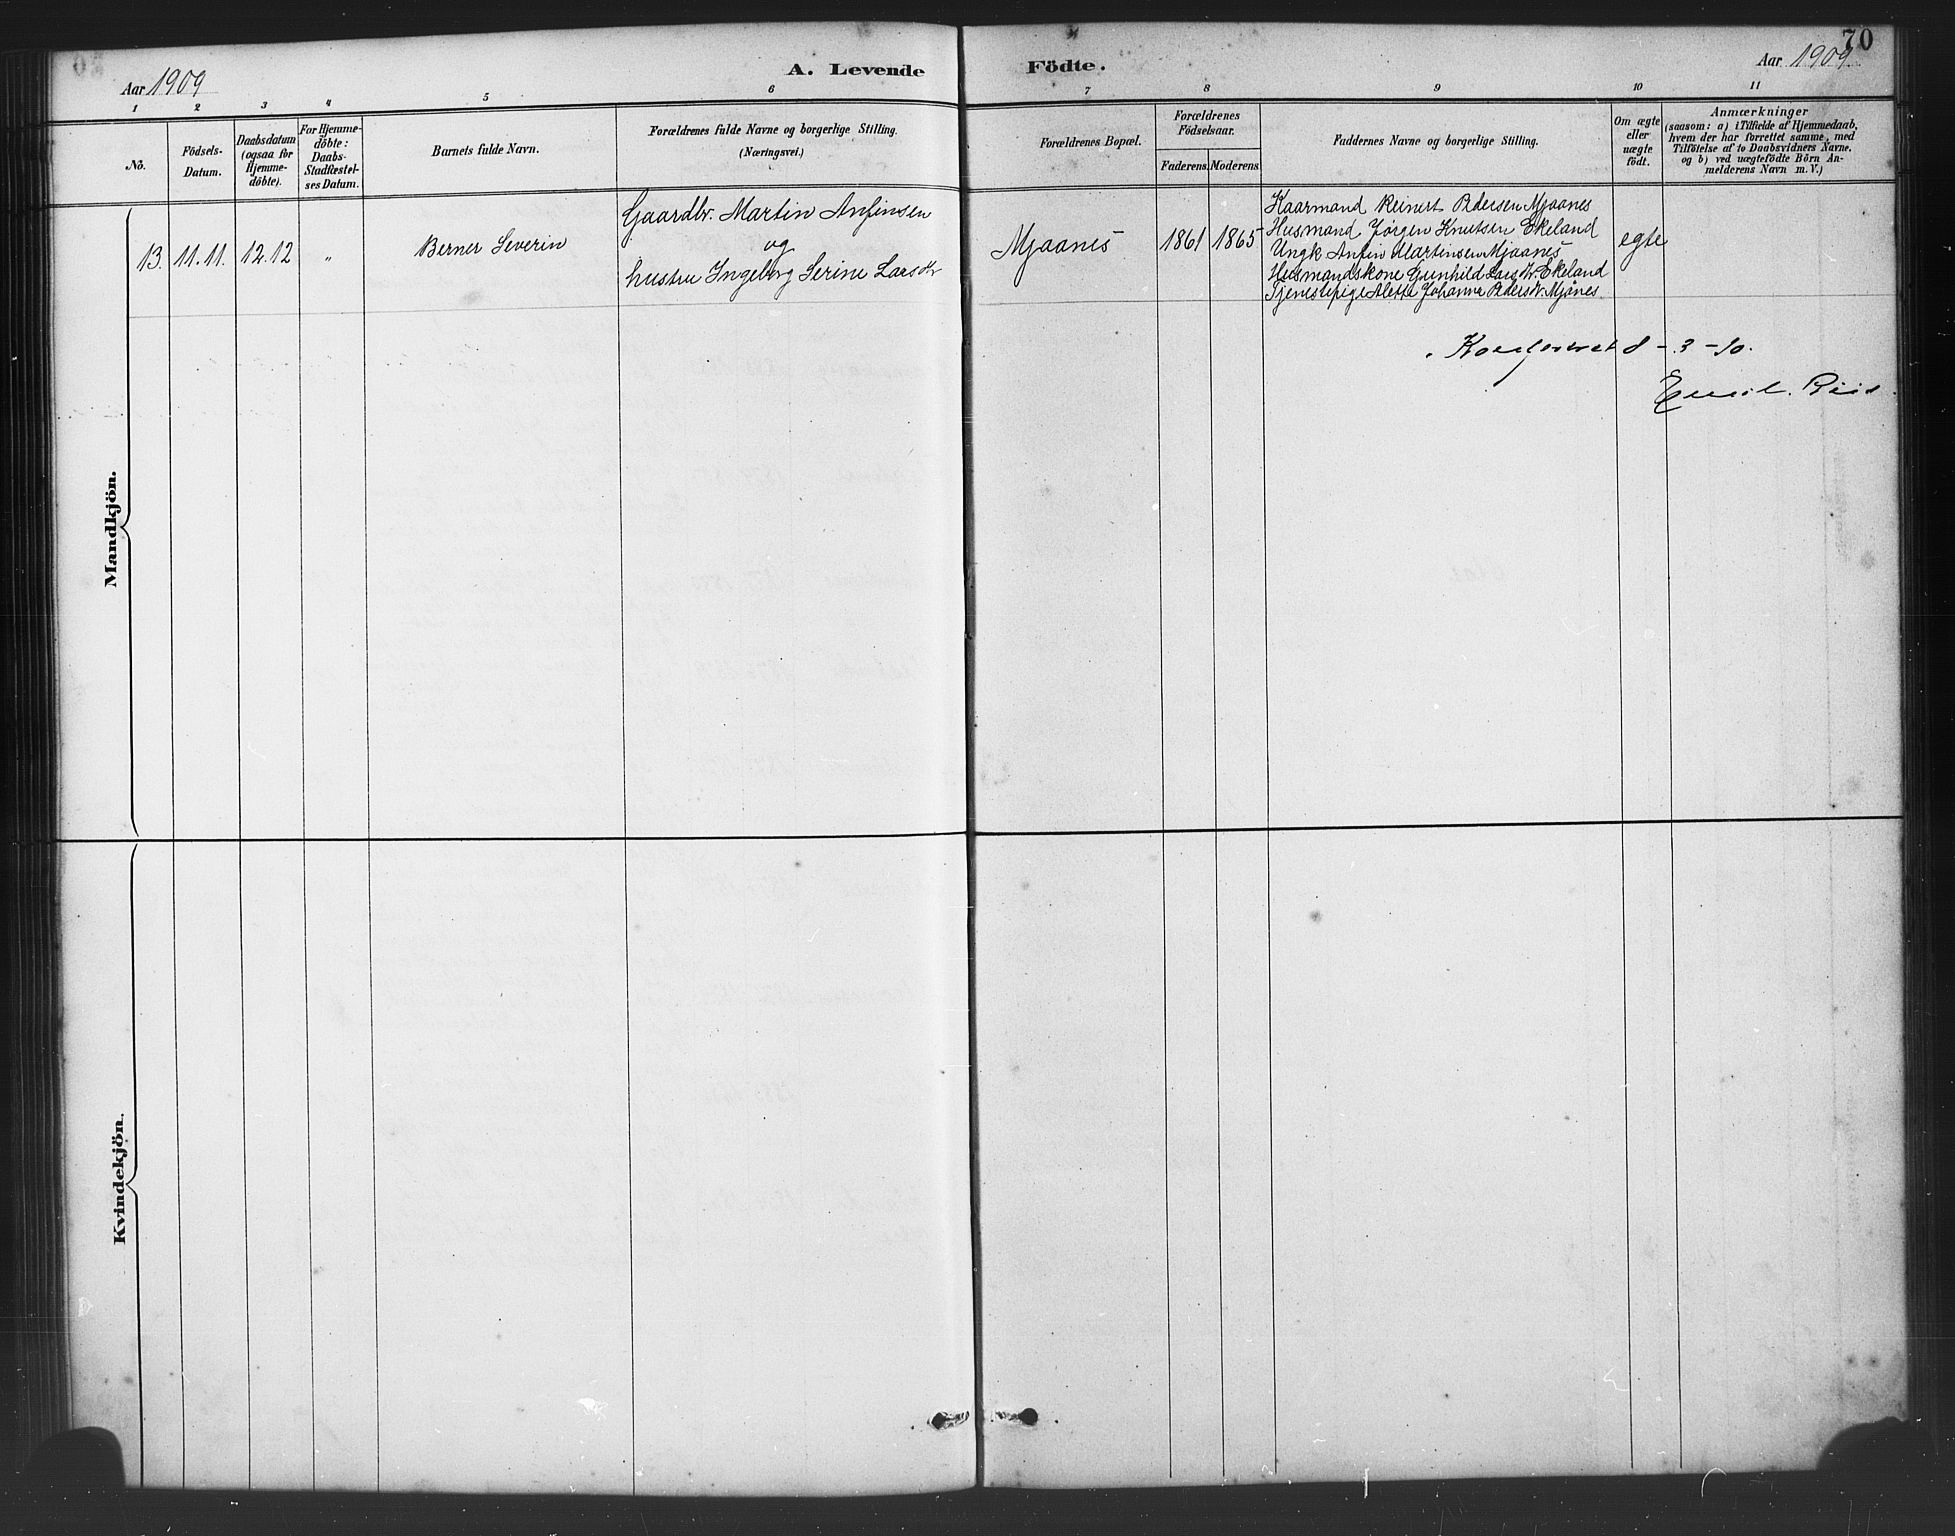 70
Aar 1909
A. Levende Födte.
Aar 1909
1 2 3 4 5 6 7 8 9 10 11
No.
Födsels-
Datum.
Daabsdatum
(ogsaa for
Hjemme-
döbte).
For Hjemme-
döbte:
Daabs-
Stadfæstel-
ses Datum.
Barnets fulde Navn.
Forældrenes fulde Navne og borgerlige Stilling.
(Næringsvei.)
Forældrenes Bopæl.
Forældrenes
Födselsaar.
Faderens. Moderens.
Faddernes Navne og borgerlige Stilling.
Om ægte
eller
uægte
födt.
Anmærkninger
(saasom: a) i Tilfælde af Hjemmedaab,
hvem der har forrettet samme, med
Tilföielse af to Daabsvidners Navne,
og b) ved uægtefödte Börn An-
melderens Navn m. V.)
Mandkjön.
13. 11.11. 12.12 „ Berner Severin
Gaardbr. Martin Anfinsen
og
hustru Ingeborg Serine Larsdr
Mjaanes 1861 1865
Kaarmand Reinert Pedersen Mjaanes
Husmand Jørgen Knutsen Ekeland
Ungk Anfin Martinsen Mjaanes
Husmandskone Gunhild Larsdr. Ekeland
Tjenestepige Aletta Johanne Pedersdr. Mjånes.
egte
Konfereret 8-3-10.
Emil
Kvindekjön.